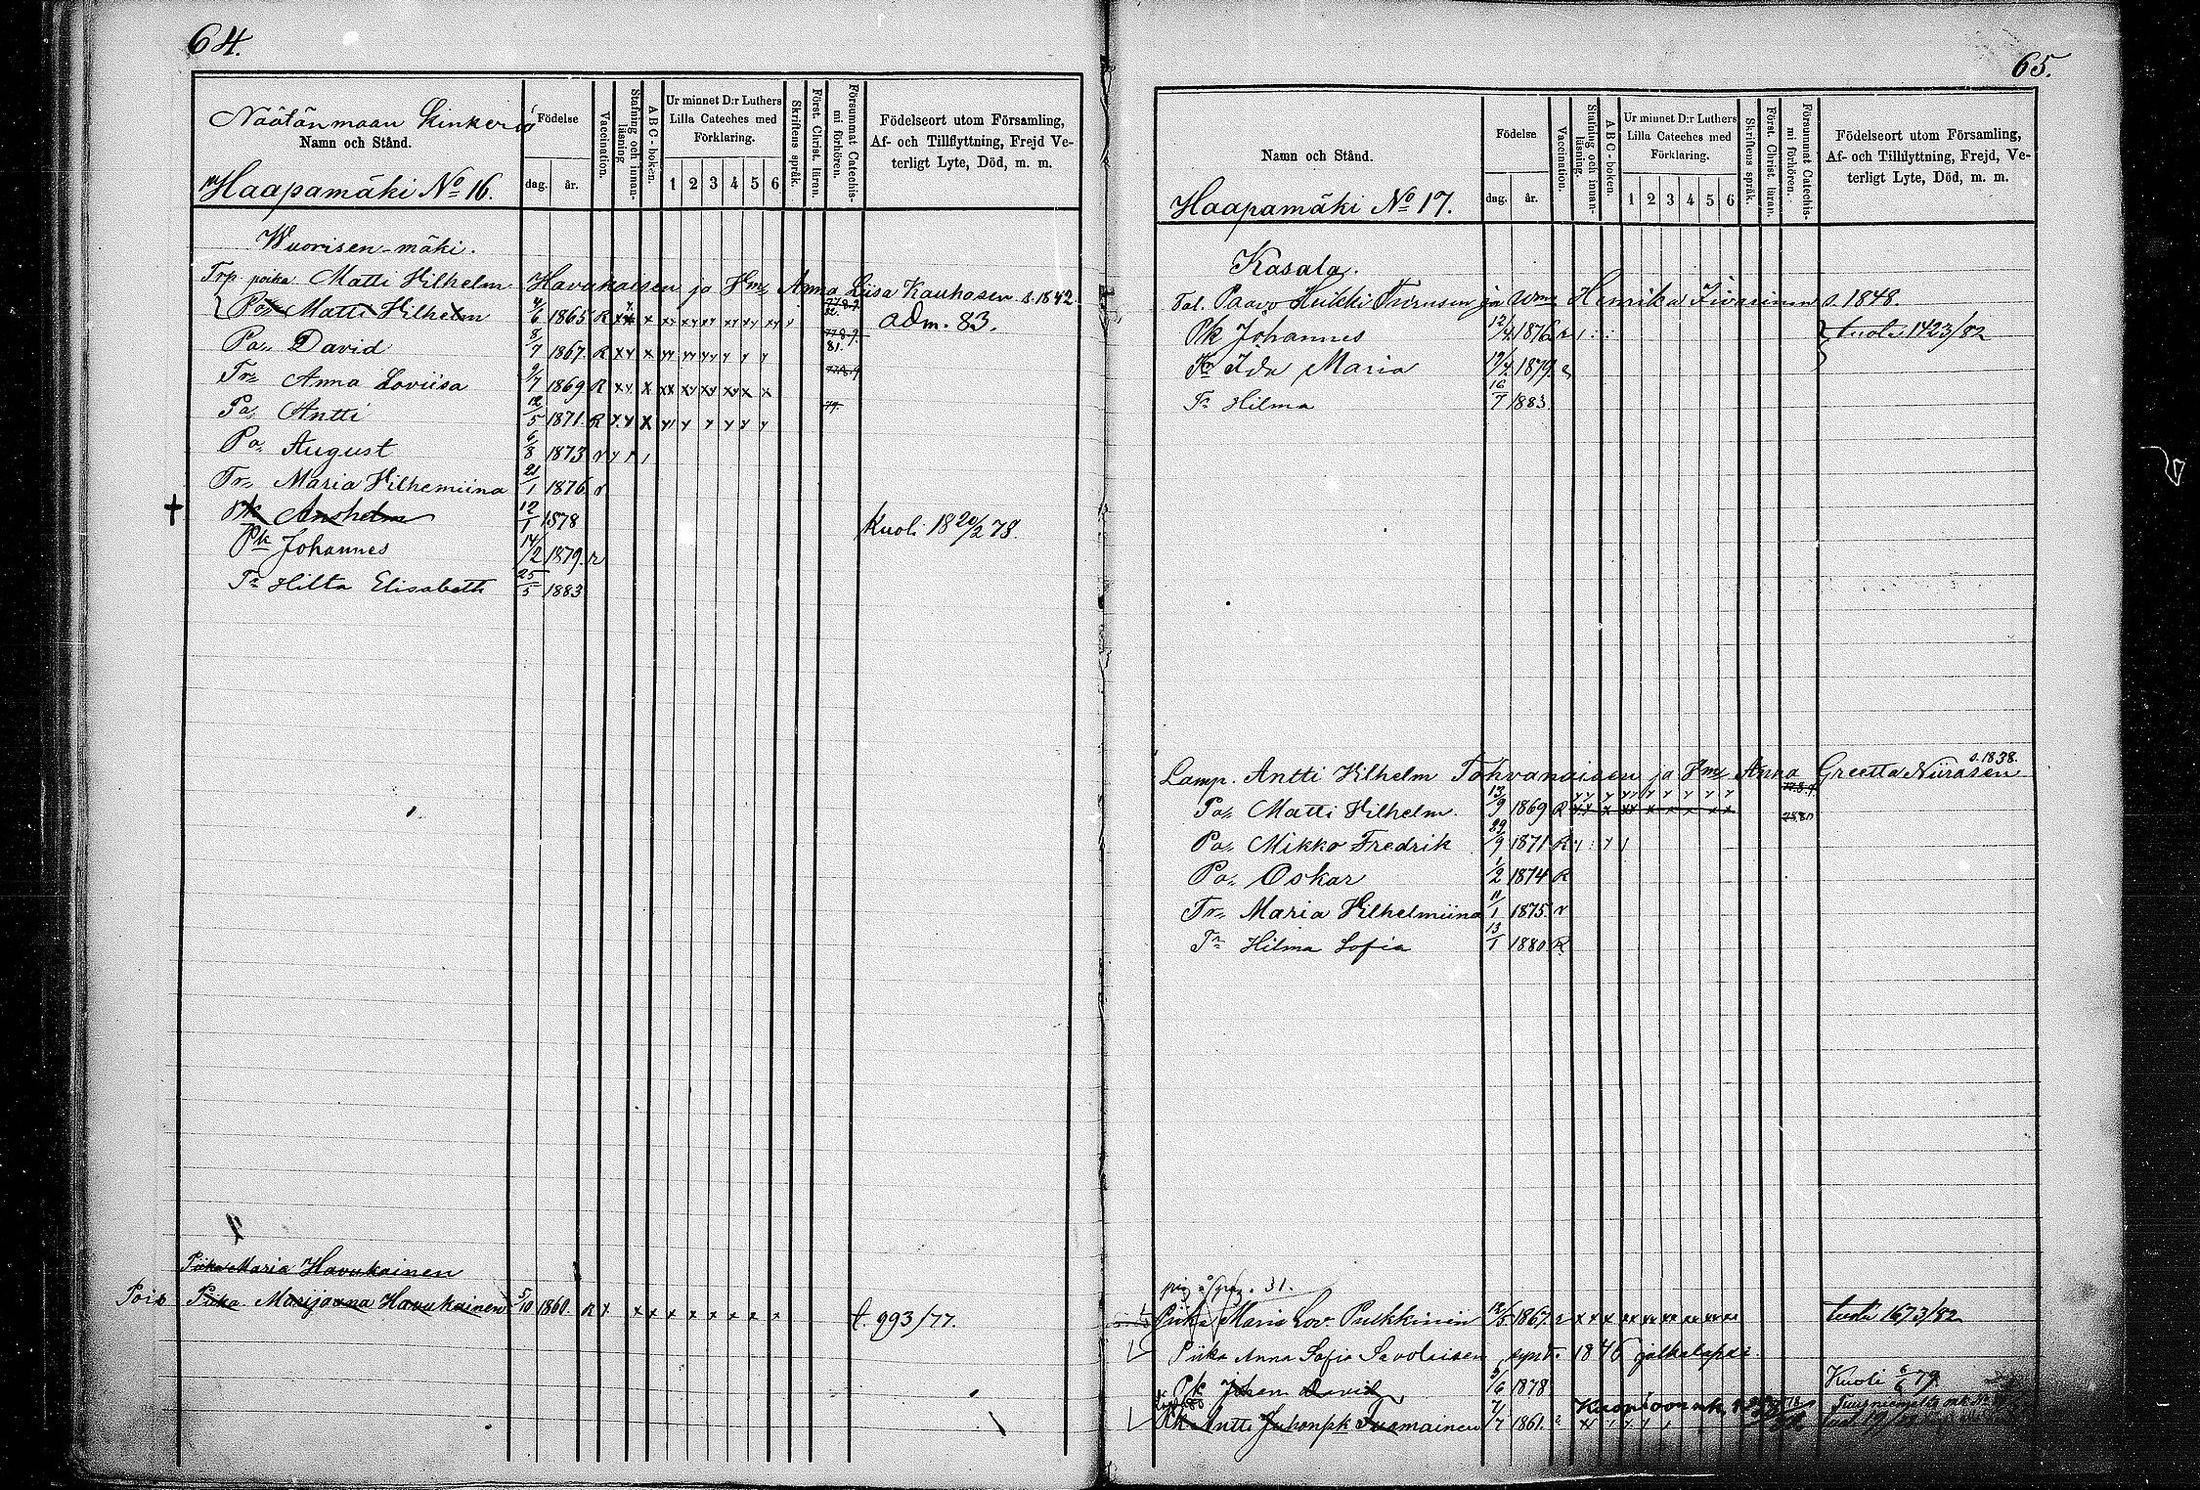 64.
Näätänmaan Kinkeriä
Namn och Stånd.
Haapamäki No 16.
Födelse
dag. år.
Vaccination.
Stafning och innan-läsning
ABC-boken.
Ur minnet D:r Luthers
Lilla Cateches med
Förklaring.
1 2 3 4 5 6
Skriftens språk.
Först. Christ. läran.
Försummat Catechis-mi förhören.
Födelseort utom Församling,
Af- och Tillflyttning, Frejd Ve-
terligt Lyte, Död, m. m.
Wuorisen-mäki.
Trp. poika Matti Vilhelm Havukaisen ja Hmä Anna Liisa Kauhosen s. 1842.
Po Matti Vilhelm 4/6 1865 R adm. 83.
Po David 8/7 1867 R 81.
Tr Anna Loviisa 2/7 1869 R
Po Antti 12/5 1871 R 79.
Po August 6/8 1873 r
Tr Maria Vilhemiina 21/1 1876 r
Pk Anshelm 12/1 1878 Kuoli 18 20/2 78.
Pk Johannes 14/2 1879 r
Tr Hilta Elisabeth 25/5 1883
Piika Maria Havukainen
Pois Piika Marijaana Havukainen 5/10 1860 R t. 993/77.
65.
Namn och Stånd.
Haapamäki No 17.
Födelse
dag. år.
Vaccination.
Stafning och innan-läsning.
ABC-boken.
Ur minnet D:r Luthers
Lilla Cateches med
Förklaring.
1 2 3 4 5 6
Skriftens språk.
Först. Christ. läran.
Försummat Catechis-mi förhören.
Födelseort utom Församling,
Af- och Tillflyttning, Frejd, Ve-
terligt Lyte, Död, m. m.
Kasala.
Tal. Paavo Heikki Turusen ja Wmo Henrika s. 1848.
Pk Johannes 12/4 1876 r tuoli 1423/82
Tr Ida Maria 1879
Tr Hilma 16/7 1883
Lamp. Antti Vilhelm Tahvanaisen ja Hmä Anna Greetta Niirasen s. 1838.
Po Matti Vilhelm 13/9 1869 R
Po Mikko Fredrik 29/9 1871 R
Po Oskar 1/2 1874 R
Tr Maria Vilhelmiina 11/1 1875 r
Tr Hilma Sofia 13/1 1880 R
pag. 31.
Piika Maria Lov. Pulkkinen 12/5 1867 r tuoli 1673/82
Piika Anna Sofia Savolaisen synt. 1846 jalkalapsi
Pk Johan David 5/6 1878 Kuoli 79
Pk Antti Juhonpk Tuomainen 7/7 1861